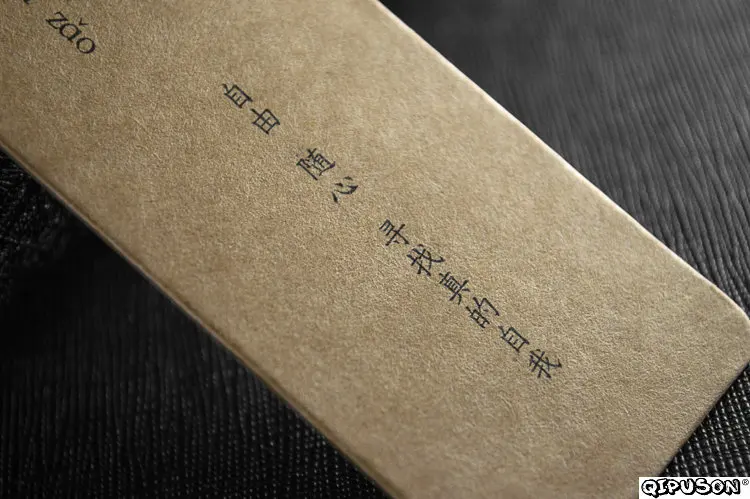 zǎo
自由 随心 寻找真的自我
QIPUSON®